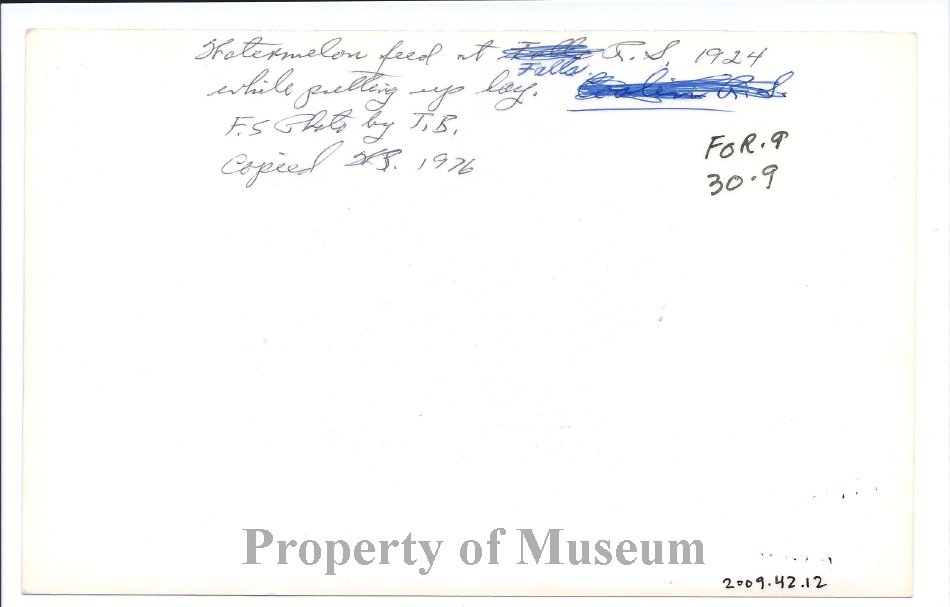 Watermelon feed at Falls R.S. 1924
while putting up hay.
F.S Photo by T.B.
Copied 1976
FOR.9
30.9
Property of Museum
2009.42.12